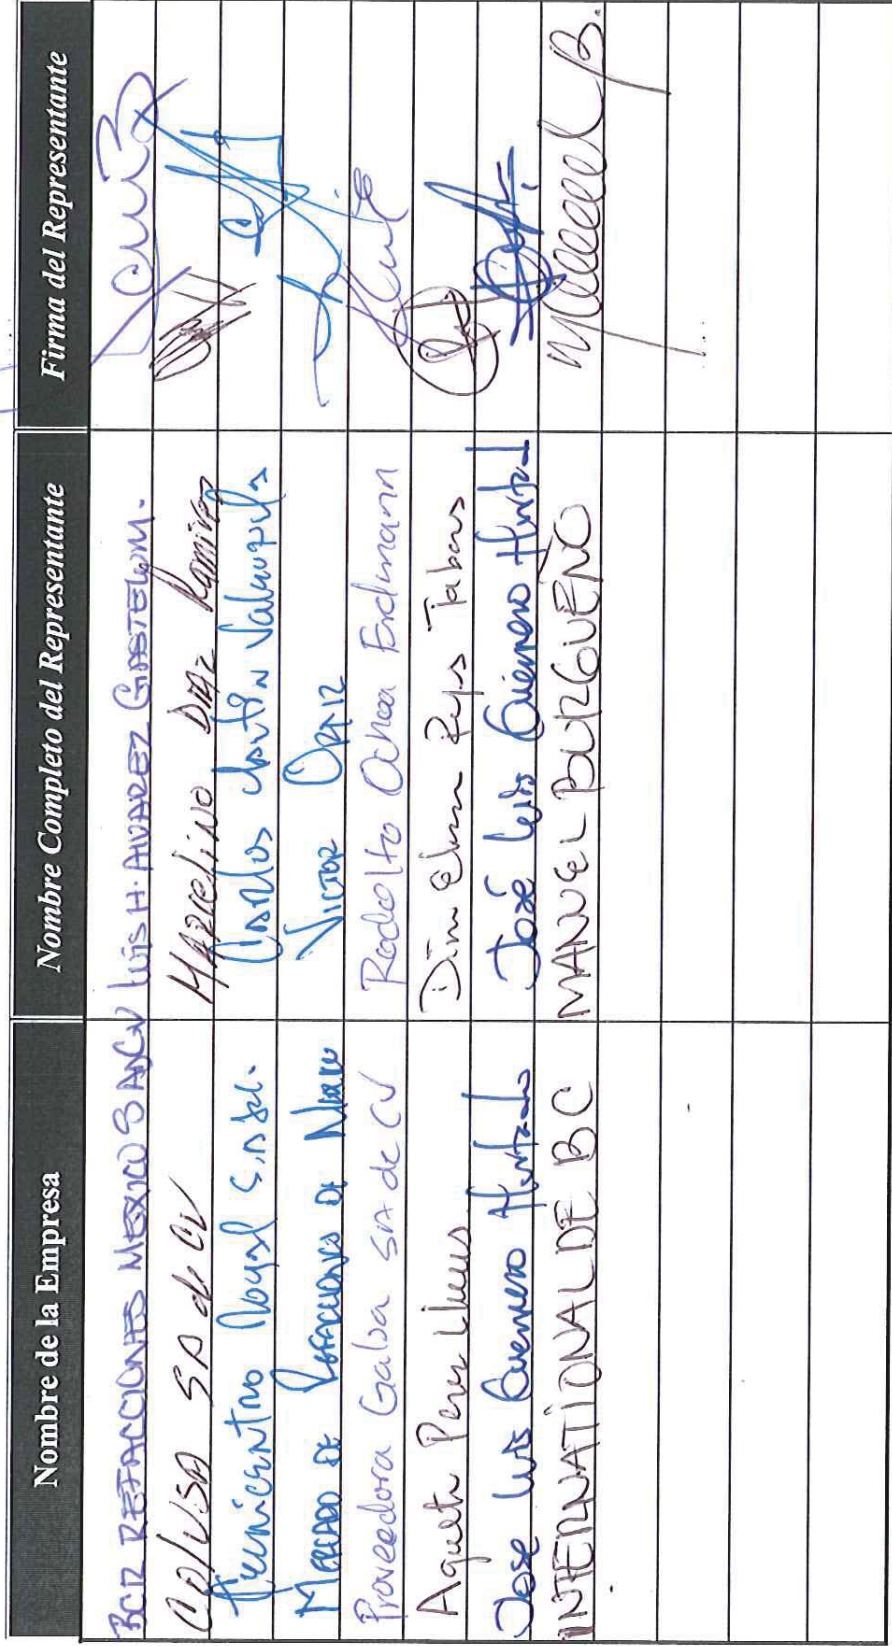 Nombre de la Empresa Nombre Completo del Representante Firma del Representante
BCR REFACCIONES MEXICO SA CV Luis H. ALVAREZ GASTELUM.
SA de CV Marcelino DIAZ Ramirez
Carlos Martin Valenzuela
MERCADO DE REFACCIONES DE VICTOR ORTIZ
Proveedora Galva SA de CV Rodolfo Ochoa Erdmann
Perez Reyes
Jose Luis Guerrero Hurtado José Luis Guerrero Hurtado
INTERNATIONAL DE BC MANUEL BURGUEÑO Manuel B.